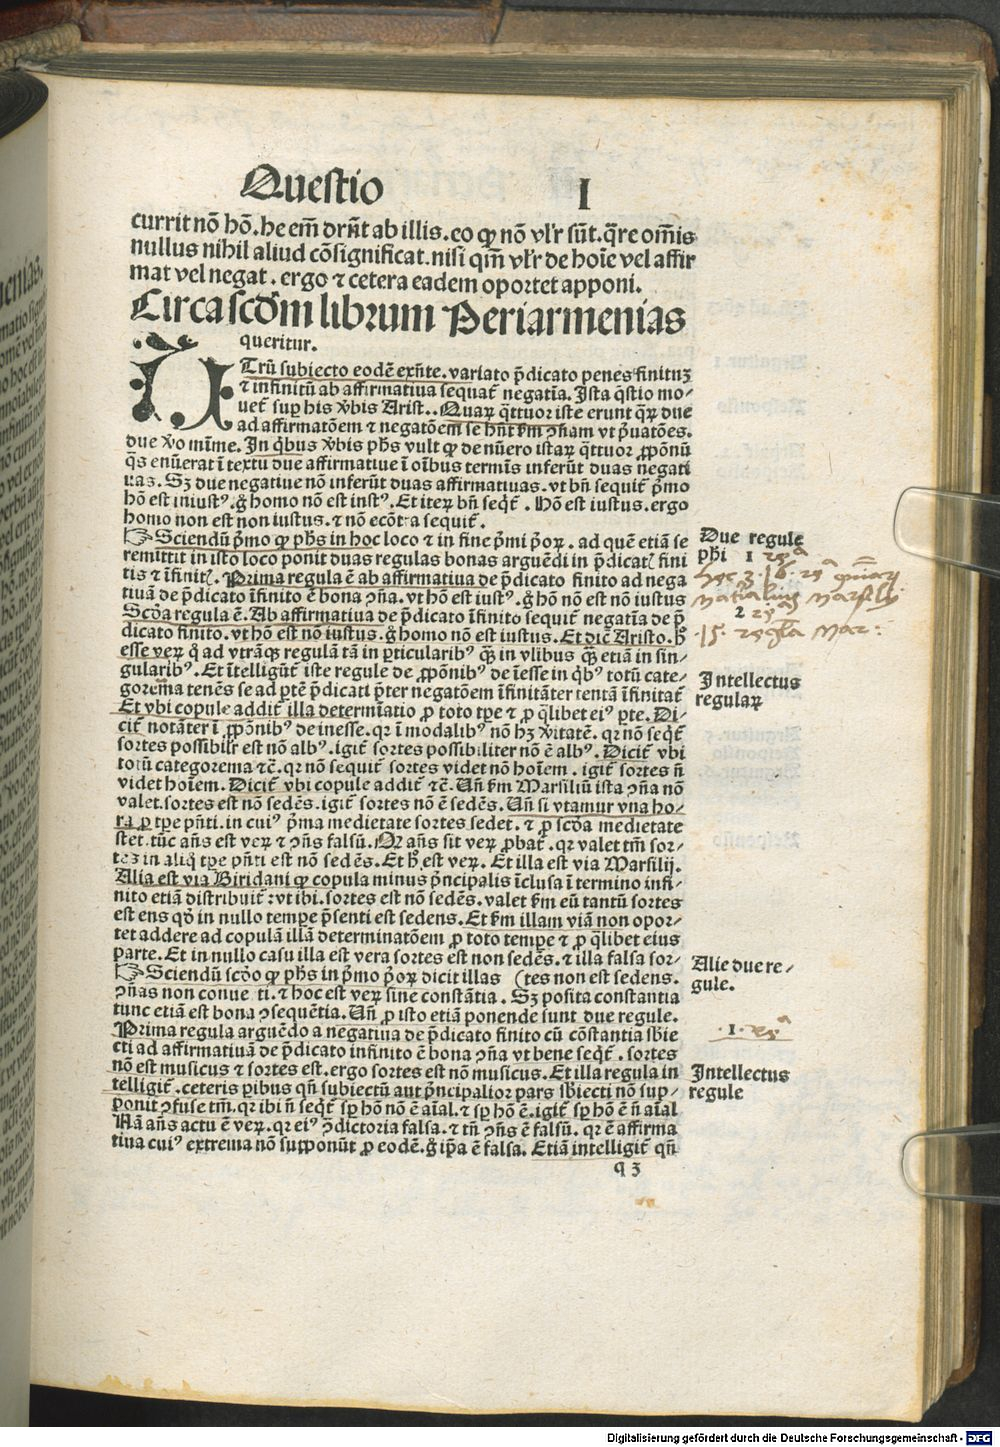 Questio I
currit nō hō. he em̄ dr̄nt ab illis. eo ꝙ nō vl'r sūt. q̄re om̄is
nullus nihil aliud cōsignificat. nisi qm̄ vl'r de hoīe vel affir
mat vel negat. ergo ⁊ cetera eadem oportet apponi.
Circa scd̄m librum Periarmenias
queritur.
UTrū subiecto eodē exn̄te. variato p̄dicato penes finituꝫ
⁊ infinitū ab affirmatiua sequat̄ negatīa. Ista q̄stio mo-
uet̄ sup his v̄bis Arist.. Quaꝝ q̄ttuor iste erunt q̄ꝝ due
ad affirmatōem ⁊ negatōem se hn̄t km̄ ꝯn̄am vt p̄uatōes.
due v̄o mīme. In q̄bus v̄bis ph̄s vult ꝙ de nūero istaꝝ q̄ttuor ꝓpōnū
q̄s enūerat ī textu due affirmatiue ī oībus termīs inferūt duas negati
uas. Sꝫ due negatiue nō inferūt duas affirmatiuas. vt bn̄ sequit̄ p̄mo
hō est iniustꝰ. g̊ homo nō est iustꝰ. Et iteꝝ bn̄ seq̄t̄. Hō est iustus. ergo
homo non est non iustus. ⁊ nō ecōtra sequit̄.
☞ Sciendū p̄mo ꝙ ph̄s in hoc loco ⁊ in fine p̄mi p̄oꝝ. ad quē etiā se
remittit in isto loco ponit duas regulas bonas arguēdi in p̄dicatꝭ fini
tis ⁊ īfinitꝭ. Prima regula ē ab affirmatiua de p̄dicato finito ad nega
tiuā de p̄dicato īfinito ē bona ꝯn̄a. vt hō est iustꝰ. g̊ hō nō est nō iustus
Scd̄a regula ē. Ab affirmatiua de p̄dicato īfinito sequit̄ negatīa de p̄
dicato finito. vt hō est nō iustus. g̊ homo nō est iustus. Et dic̄ Aristo. h̄
esse veꝝ q̄ ad vtrāqꝫ regulā tā in ꝑticularibꝰ q̄ꝫ in vlibus q̄ꝫ etiā in sin-
gularibꝰ. Et ītelligūt̄ iste regule de ꝓpōnibꝰ de īesse in qbꝰ totū cate-
gorema tenēs se ad ptē p̄dicati p̄ter negatōem īfinitāter tentā īfinitat̄
Et vbi copule addit̄ illa determīatio ꝓ toto tꝑe ⁊ ꝓ q̄libet eiꝰ ꝑte. Di-
cit̄ notāter ī ꝓpōnibꝰ de inesse. qr ī modalibꝰ nō hꝫ v̄itatē. qr nō seq̄t̄
sortes possibilr est nō albꝰ. igit̄ sortes possibiliter nō ē albꝰ. Dicit̄ vbi
totū categorema ⁊c̄. qr nō sequit̄ sortes videt nō hoīem. igit̄ sortes n̄
videt hoīem. Dicit̄ vbi copule addit̄ ⁊c̄. Un̄ km̄ Marsiliū ista ꝯn̄a nō
valet. sortes est nō sedēs. igit̄ sortes nō ē sedēs. Un̄ si vtamur vna ho-
ra ꝓ tꝑe pn̄ti. in cuiꝰ p̄ma medietate sortes sedet. ⁊ ꝓ scd̄a medietate
stet. tūc an̄s est veꝝ ⁊ ꝯn̄s falsū. Qr an̄s sit veꝝ ꝓbat̄. qr valet tm̄ sor-
tes in aliq̄ tꝑe pn̄ti est nō sedēs. Et h̄ est veꝝ. Et illa est via Marsilij.
Alia est via Biridani ꝙ copula minus p̄ncipalis īclusa ī termino infi-
nito etiā distribuit̄: vt ibi. sortes est nō sedēs. valet km̄ eū tantū sortes
est ens qd̄ in nullo tempe p̄senti est sedens. Et km̄ illam viā non opor-
tet addere ad copulā illā determinatōem ꝓ toto tempe ⁊ ꝓ q̄libet eius
parte. Et in nullo casu illa est vera sortes est non sedēs. ⁊ illa falsa sor-
☞ Sciendū scd̄o ꝙ ph̄s in p̄mo p̄oꝝ dicit illas (tes non est sedens.
ꝯn̄as non conue ti. ⁊ hoc est veꝝ sine constātia. Sꝫ posita constantia
tunc etiā est bona ꝯsequētia. Un̄ ꝓ isto etiā ponende sunt due regule.
Prima regula arguēdo a negatiua de p̄dicato finito cū cōstantia sb̄ie
cti ad affirmatiuā de p̄dicato infinito ē bona ꝯn̄a vt bene seq̄t̄. sortes
nō est musicus ⁊ sortes est. ergo sortes est nō musicus. Et illa regula in
telligit̄. ceteris ꝑibus qn̄ subiectū aut p̄ncipalior pars sb̄iecti nō sup-
ponit ꝯfuse tm̄. qr ibi n̄ seq̄t̄ sp̄ hō nō ē aīal. ⁊ sp̄ hō ē. igit̄ sp̄ hō ē n̄ aīal
Nā an̄s actu ē veꝝ. qr eiꝰ ꝯdictoria falsa. ⁊ tn̄ ꝯn̄s ē falsū. qr ē affirma
tiua cuiꝰ extrema nō supponūt ꝓ eodē. g̊ ip̄a ē falsa. Etiā intelligit̄ qn̄
q 3
Due regule
ph̄i 1
2
15. regl̄a Mar:
Intellectus
regulaꝝ
Alie due re-
gule.
.1.
Intellectus
regule
Digitalisierung gefördert durch die Deutsche Forschungsgemeinschaft - DFG